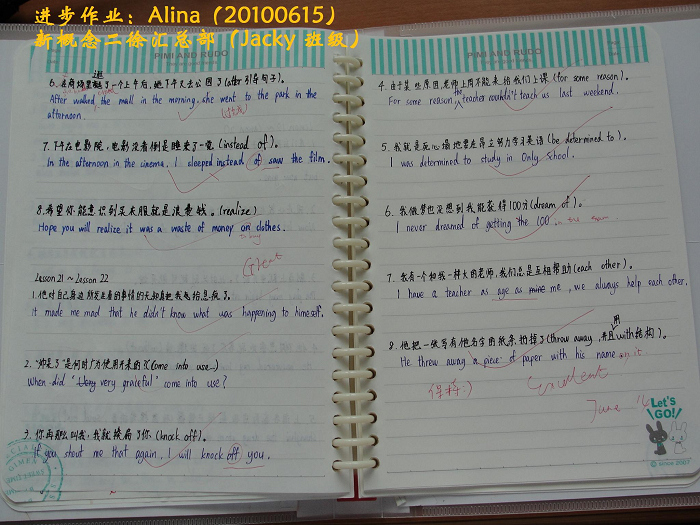 进步作业：Alina（20100615）
新概念二徐汇总部（Jacky 班级）
PIMI AND RUDO
6. 在商场里逛了一个上午后，她下午又去公园了(after 引导句子)。
After walked the mall in the morning, she went to the park in the
afternoon.
7. 下午在电影院，电影没看倒是睡了一觉(instead of)。
In the afternoon in the cinema, I sleeped instead of saw the film.
8. 希望你能意识到买衣服就是浪费钱。(realize)
Hope you will realize it was a waste of money on clothes.
Great
Lesson 21 ~ Lesson 22
1. 他对自己身边所发生着的事情的无知真把我给惹急了。
it made me mad that he didn't know what was happening to himself.
2. "帅呆了"是何时广为使用开来的?(Come into use)
When did ' very graceful' come into use?
3. 你再那么叫我，我就揍扁了你(knock off)。
If you shout me that again, I will knock off you.
PIMI AND RUDO
4. 由于某些原因，老师上周不能来给我们上课(for some reason)。
For some reason, the teacher couldn't teach us last weekend.
5. 我就是死心塌地要在昂立努力学习英语(be determined to)。
I was determined to study in Only School.
6. 我做梦也没想到我能获得100分(dream of)。
I never dreamed of getting the 100. in the exam
7. 我有一个和我一样大的老师，我们总是互相帮助(each other)。
I have a teacher as age as me, we always help each other.
8. 他把一张写有他名字的纸条扔掉了(throw away, 并且用with结构)。
He threw away a piece of paper with his name on it
Excellent
June
Let's
GO!
© since 2007